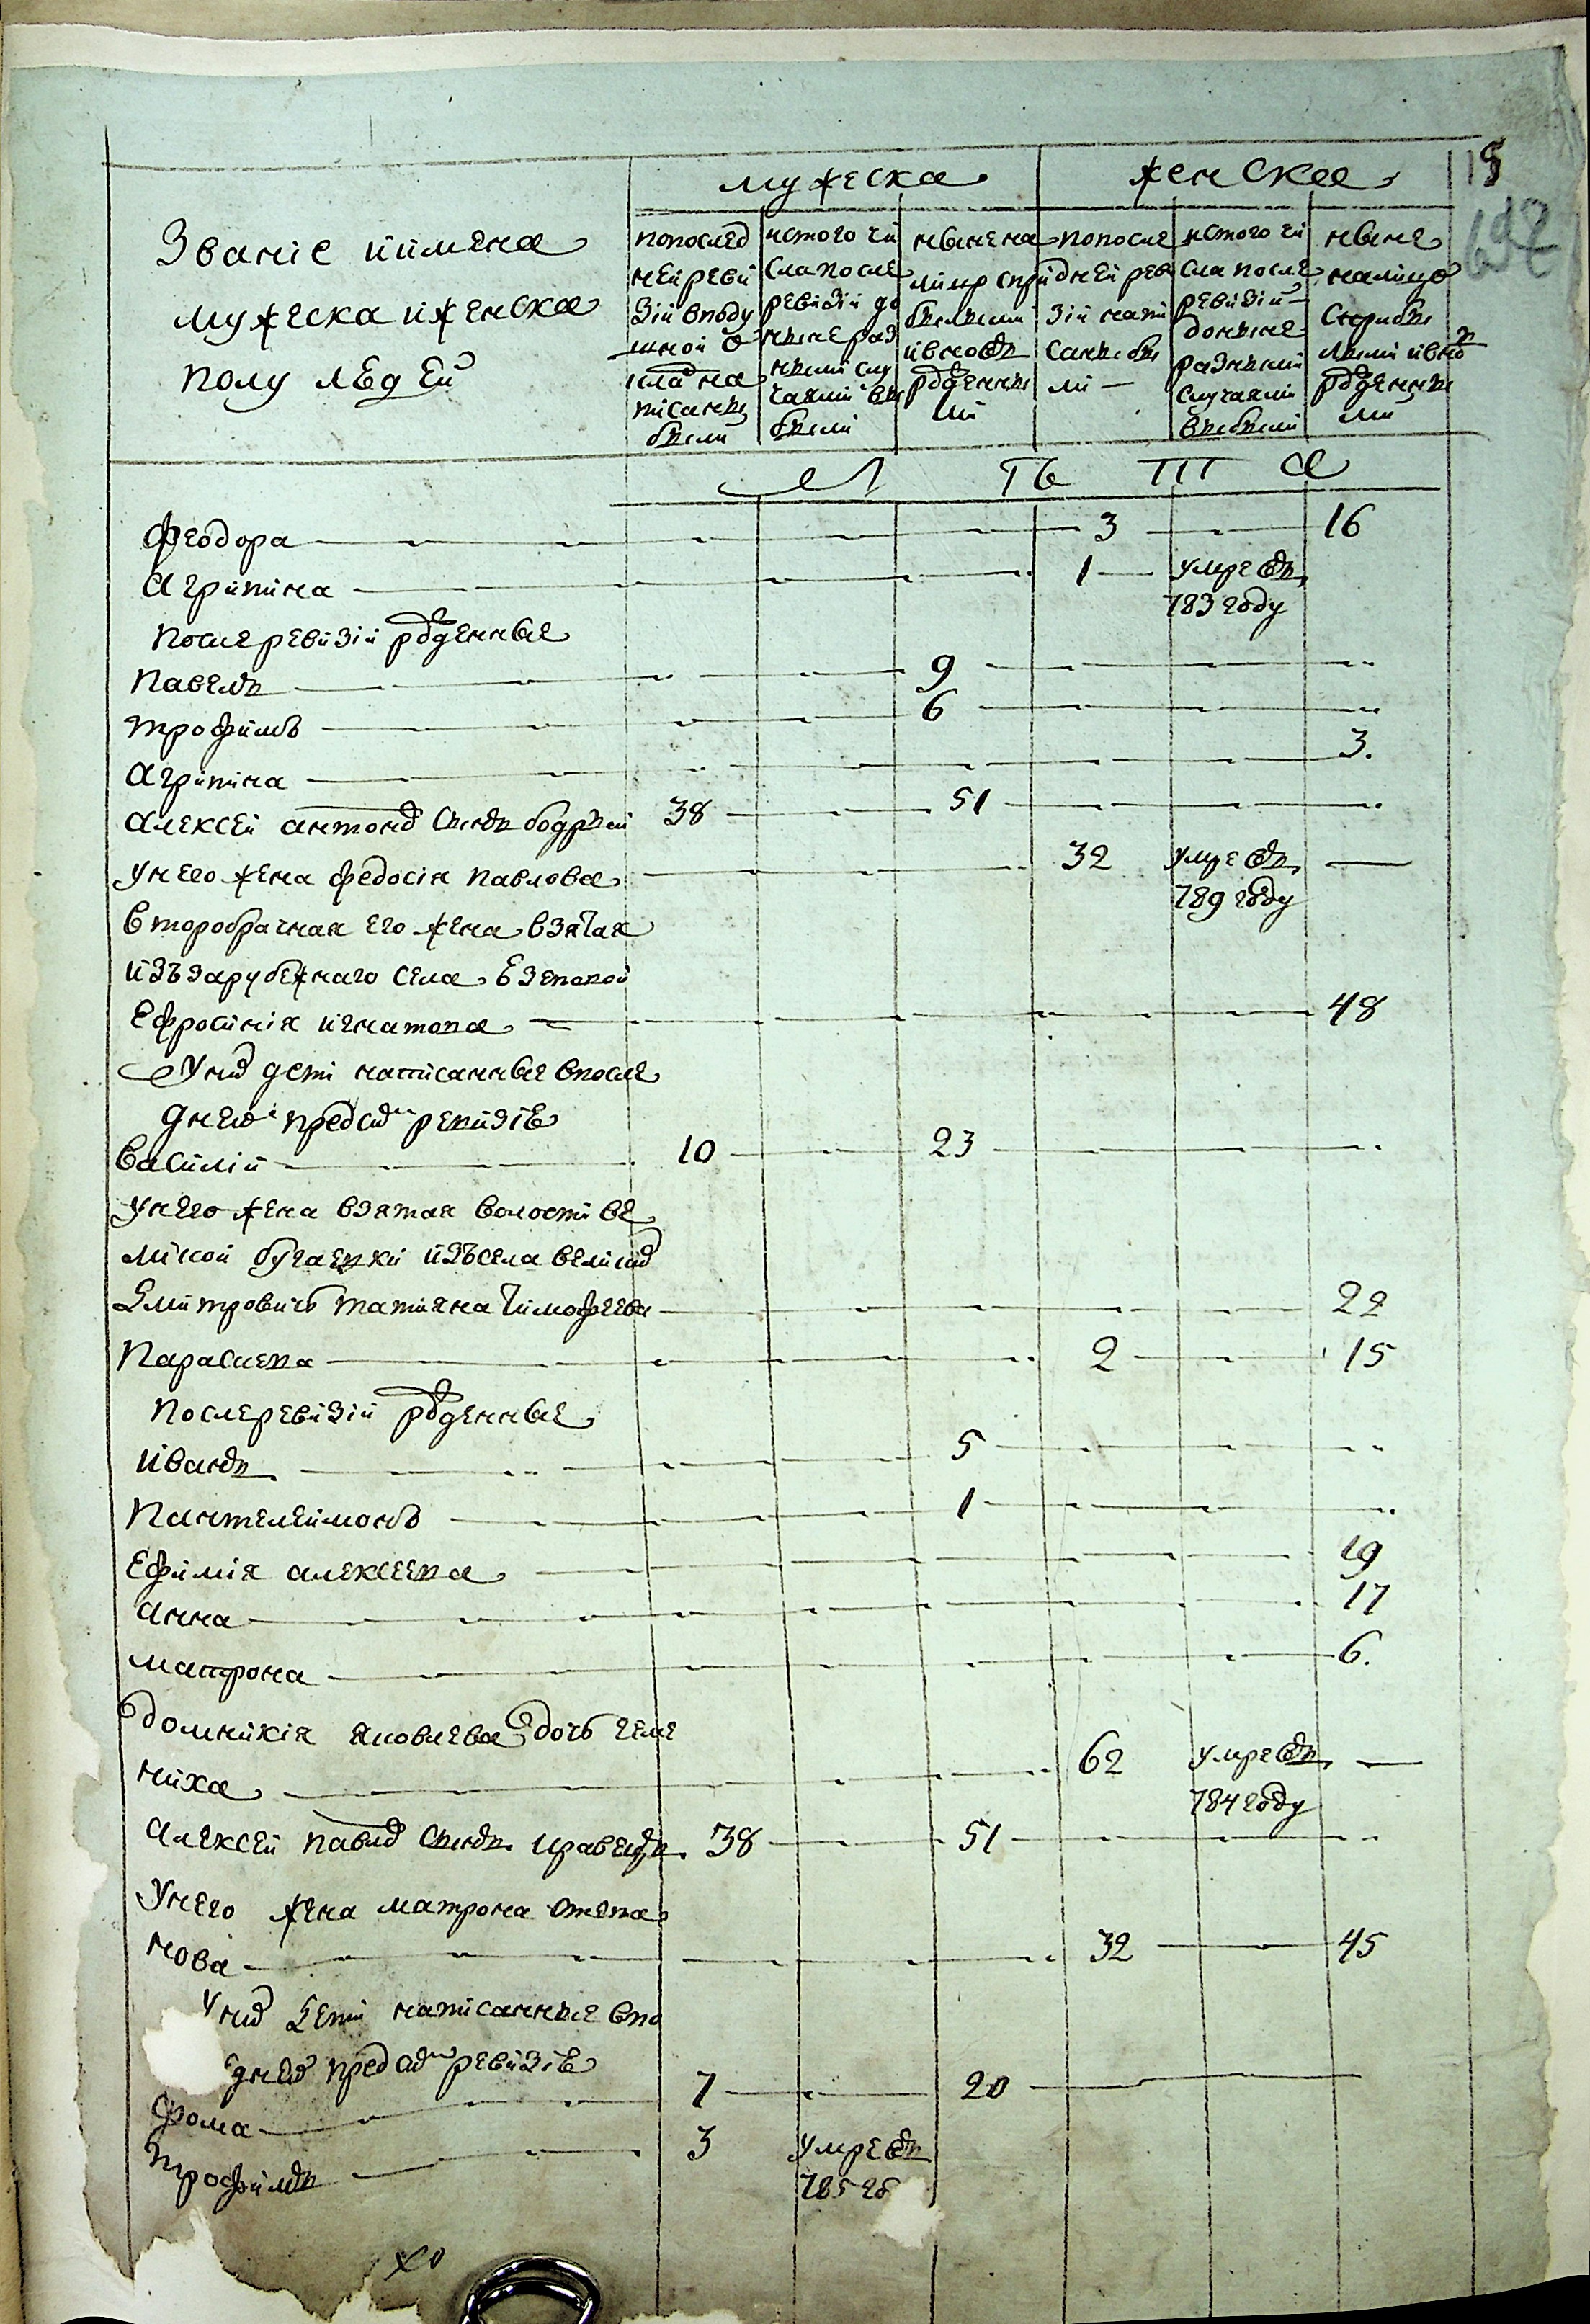 мужеска женска 115
697
Званіе иимена
мужеска иженска
полу людей
попослед
ней реви
зіи вподу
шной о
кла на
писаны
были
истого чи
сла после
ревизіи до
ныне раз
ными слу
чаями вы
были
нынена
лицо спри
былыми
ивновь
рожденны
ми
попосле
дней реви
зіи напи
саны бы
ли —
истого чи
сла после
ревизіи
доныне
разными
случаями
выбыли
ныне
налицо
сприбы
лыми ивно
рожденны
ми
Л Ѣ Т А
феодора 3 16
агрипина 1 умре въ
783 году
после ревизіи рожденные
павелъ 9
трофимъ 6
агрипина 3.
алексей антонов сынъ бодрый 38 51
унего жена федосія павлова 32 умре въ —
789 году
второбрачная его жена взятая
изъ зарубежнаго села
ефросинія игнатова 48
Уних дети написанные впосле
днеи пред сим ревизіе
василій 10 23
унего жена взятая волости ве
ликой бугаевки изъ села великих
дмитровичь татіяна тимофеева 22
параскева 2 15
послеревизіи рожденные
иванъ 5
пантелеимонъ 1
ефимія алексеева 19
анна 17
матрона 6.
домникія яковлева дочь
ниха 62 умре въ —
784 году
алексей павлов сынъ кравецъ 38 51
унего жена матрона степа
нова 32 45
Уних дети написанные впо
днеи пред сим ревизіе
фома 7 20
трофимъ 3 умре въ
785 го